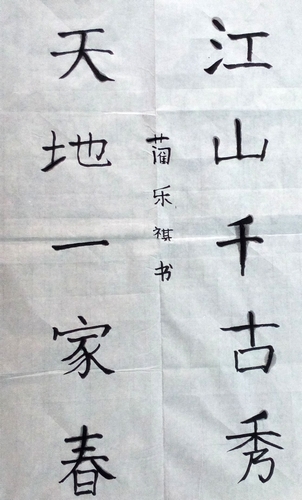 江山千古秀
蔺乐祺书
天地一家春